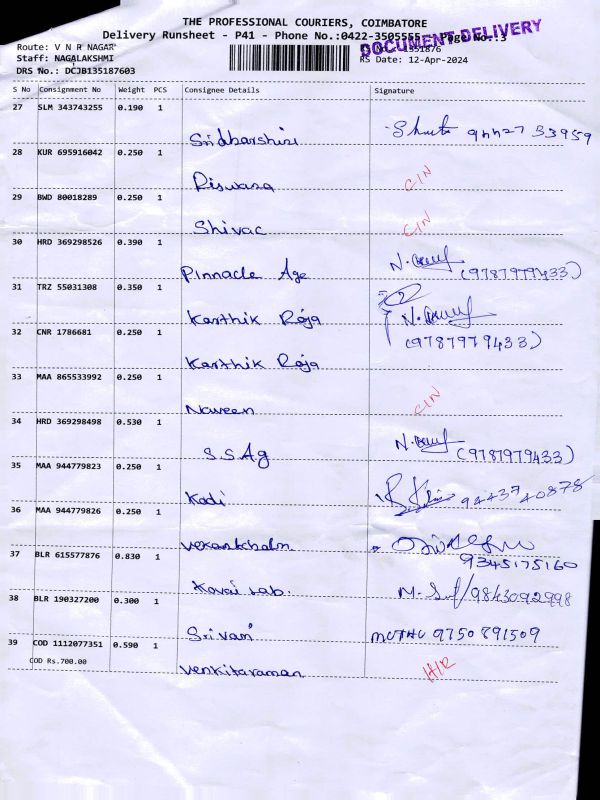 THE PROFESSIONAL COURIERS, COIMBATORE
Delivery Runsheet - P41 - Phone No.:0422-3505555 Page No.:3
DOCUMENT DELIVERY
Route: V N R NAGAR
Staff: NAGALAKSHMI
RS Date: 12-Apr-2024
DRS No.: DCJB135187603
S No Consignment No Weight PCS Consignee Details Signature
27 SLM 343743255 0.190 1
Sridharshini
28 KUR 695916042 0.250 1
CIN
29 BWD 80018289 0.250 1
Shivac CIN
30 HRD 369298526 0.390 1
Pinnacle Age (9787979433)
31 TRZ 55031308 0.350 1
Karthik Roja
32 CNR 1786681 0.250 1 (9787979433)
Karthik Roja
33 MAA 865533992 0.250 1
Naveen CIN
34 HRD 369298498 0.530 1
S.S Ag (9787979433)
35 MAA 944779823 0.250 1
Kodi 9443740878
36 MAA 944779826 0.250 1
37 BLR 615577876 0.830 1 9345175160
Kovai Lab. 9843092998
38 BLR 190327200 0.300 1
Srivani MUTHU 9750891509
39 COD 1112077351 0.590 1
COD Rs.700.00
Venkitaraman H/R